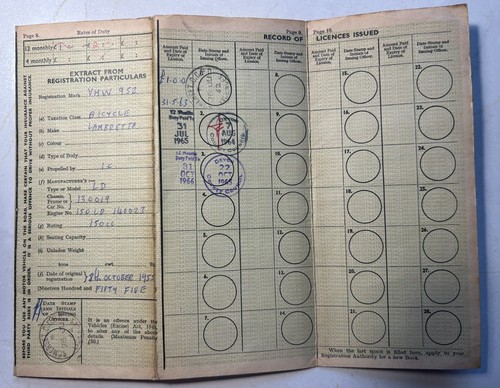 Page 8.
Rates of Duty
12 monthly £
4 monthly £
EXTRACT FROM
REGISTRATION PARTICULARS
Registration Mark YMW 952
(a) Taxation Class BICYCLE
(b) Make LAMBRETTA
(c) Colour
(d) Type of Body
(e) Propelled by I.C
(f) MANUFACTURER'S
Type or Model LD
Chassis,
Frame or
Car No. 130019
Engine No. 150 LD
(g) Rating 150cc
(h) Seating Capacity
(i) Unladen Weight
tons cwt.
(j) Date of original
registration OCTOBER
Nineteen Hundred and FIFTY FIVE
DATE STAMP
AND INITIALS
OF ISSUING
OFFICER.
It is an offence under the
Vehicles (Excise) Act, 1949,
to alter any of the above
details (Maximum Penalty
£50.)
BEFORE YOU USE ANY MOTOR VEHICLE ON THE ROAD, MAKE CERTAIN THAT YOUR INSURANCE AGAINST
THIRD PARTY RISKS IS IN ORDER. IT IS A SERIOUS OFFENCE TO DRIVE WITHOUT PROPER INSURANCE.
Page 9.
RECORD OF
Amount Paid
and Date of
Expiry of
Licence.
Date-Stamp and
Initials of
Issuing Officer.
Amount Paid
and Date of
Expiry of
Licence.
Date-Stamp and
Initials of
Issuing Officer.
£1.0.0
31.5.63
12 Months
Duty Paid To
31
JUL
1965
7
AUG
1964
12 Months
Duty Paid To
31
OCT
1966
DEVON
22
OCT
COUNTY COUNCIL
4.
5.
6.
7.
8.
9.
10.
11.
12.
13.
14.
Page 10.
LICENCES ISSUED
Amount Paid
and Date of
Expiry of
Licence.
Date-Stamp and
Initials of
Issuing Officer.
Amount Paid
and Date of
Expiry of
Licence.
Date-Stamp and
Initials of
Issuing Officer.
15.
16.
17.
18.
19.
20.
21.
22.
23.
24.
25.
26.
27.
28.
When the last space is filled here, apply to your
Registration Authority for a new Book.